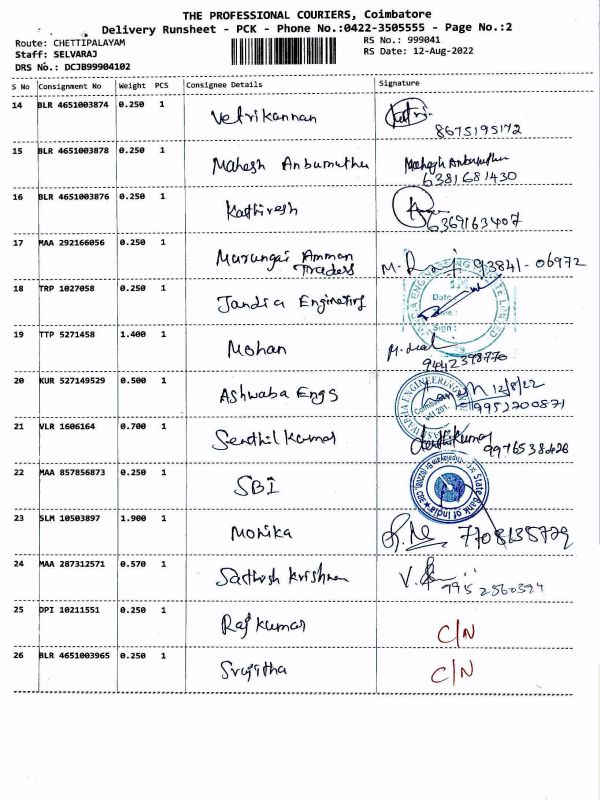 THE PROFESSIONAL COURIERS, Coimbatore
Delivery Runsheet - PCK - Phone No.:0422-3505555 - Page No.:2
Route: CHETTIPALAYAM
RS No.: 999041
Staff: SELVARAJ
RS Date: 12-Aug-2022
DRS No.: DCJB99904102
S No Consignment No Weight PCS Consignee Details Signature
14 BLR 4651003874 0.250 1 Vetrikannan
8675195172
15 BLR 4651003878 0.250 1 Mahesh Anbumuthu Mahesh Anbumuthu
6381681430
16 BLR 4651003876 0.250 1 Kathiresh
6369163407
17 MAA 292166056 0.250 1 Murungai Amman
Traders M. 93841-06972
18 TRP 1027058 0.250 1 Jandia Engineering
Date:
Sign:
19 TTP 5271458 1.400 1 Mohan
9442398770
20 KUR 527149529 0.500 1 Ashwaba Engs 12/8/22
9952700871
21 VLR 1606164 0.700 1 Senthil Kumar Senthilkumar
9976538426
22 MAA 857856873 0.250 1 SBI
State Bank of India
23 SLM 10503897 1.900 1 Monika 7708135779
24 MAA 287312571 0.570 1 Sathish Krishnan V.
9952560394
25 DPI 10211551 0.250 1 Raj Kumar C/N
26 BLR 4651003965 0.250 1 Srujitha C/N